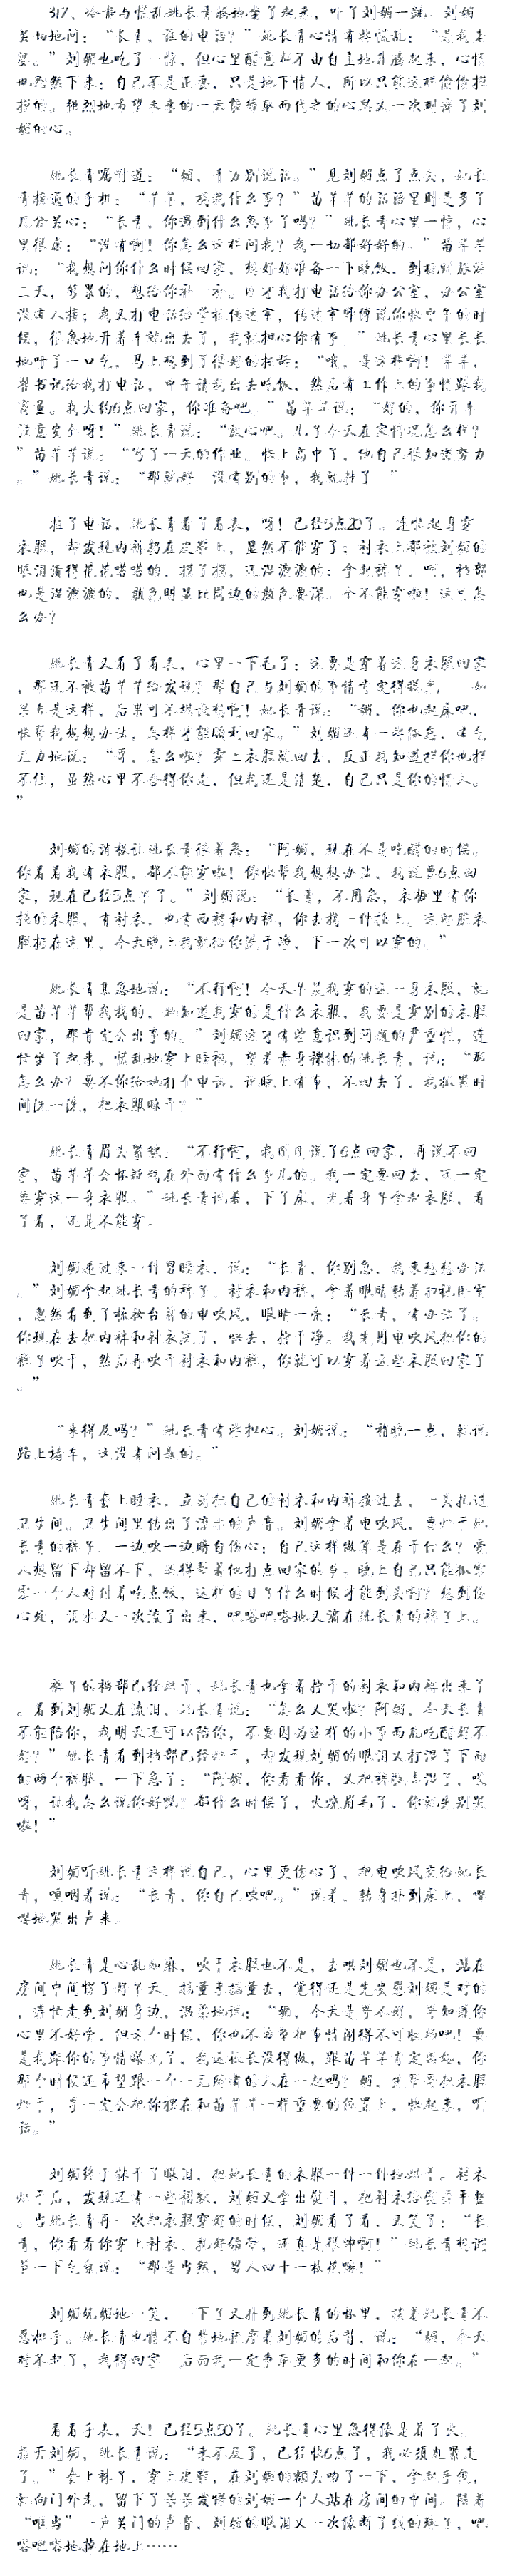 317、冷静与慌乱姚长青腾地坐了起来，吓了刘媚一跳。刘媚
关切地问：“长青，谁的电话？”姚长青心情有些慌乱：“是我老
婆。”刘媚也吃了一惊，但心里醋意却不由自主地升腾起来，心情
也黯然下来：自己不是正妻，只是地下情人，所以只能这样偷偷摸
摸的。强烈地希望未来的一天能够取而代之的心思又一次刺痛了刘
媚的心。
姚长青嘱咐道：“媚，千万别说话。”见刘媚点了点头，姚长
青接通了手机：“芊芊，找我什么事？”苗芊芊的话语里则是多了
几分关心：“长青，你遇到什么急事了吗？”姚长青心里一惊，心
里很虚：“没有啊！你怎么这样问我？我一切都好好的。”苗芊芊
说：“我想问你什么时候回家，想好好准备一下晚饭，到杭州旅游
三天，够累的，想给你补一补。刚才我打电话给你办公室，办公室
没有人接；我又打电话给学校传达室，传达室师傅说你快中午的时
候，很急地开着车就出去了，我就担心你有事。”姚长青心里长长
地吁了一口气，马上想到了很好的托辞：“哦，是这样啊！芊芊，
书记给我打电话，中午请我出去吃饭，然后有工作上的事情跟我
商量。我大约6点回家，你准备吧。”苗芊芊说：“好的，你开车
注意安全呀！”姚长青说：“放心吧。儿子今天在家情况怎么样？
”苗芊芊说：“写了一天的作业。快上高中了，他自己很知道努力
。”姚长青说：“那就好。没有别的事，我就挂了。”
挂了电话，姚长青看了看表，呀！已经5点20了。连忙起身穿
衣服，却发现内裤扔在皮鞋上，显然不能穿了；衬衣上都被刘媚的
眼泪渍得花花嗒嗒的，摸了摸，还湿漉漉的；拿起裤子，呵，裆部
也是湿漉漉的，颜色明显比周边的颜色要深。全不能穿啦！这可怎
么办？
姚长青又看了看表，心里一下毛了：这要是穿着这身衣服回家
，那还不被苗芊芊给发现？那自己与刘媚的事情肯定得曝光。如
果真是这样，后果可不堪设想啊！姚长青说：“媚，你也起床吧，
快帮我想想办法，怎样才能顺利回家。”刘媚还有一些倦怠，有气
无力地说：“哥，怎么啦？穿上衣服就回去，反正我知道拦你也拦
不住，虽然心里不舍得你走，但我还是清楚，自己只是你的情人。
”
刘媚的消极让姚长青很着急：“阿媚，现在不是吃醋的时候。
你看看我有衣服，都不能穿啦！你快帮我想想办法，我说要6点回
家，现在已经5点半了。”刘媚说：“长青，不用急，衣橱里有你
换的衣服，有衬衣，也有西裤和内裤，你去找一件换上。这些脏衣
服扔在这里，今天晚上我就给你洗干净，下一次可以穿的。”
姚长青焦急地说：“不行啊！今天早晨我穿的这一身衣服，就
是苗芊芊帮我找的，她知道我穿的是什么衣服，我要是穿别的衣服
回家，那肯定会出事的。”刘媚这才有些意识到问题的严重性，连
忙坐了起来，慌乱地穿上睡袍，望着赤身裸体的姚长青，说：“那
怎么办？要不你给她打个电话，说晚上有事，不回去了，我抓紧时
间洗一洗，把衣服晾干？”
姚长青眉头紧皱：“不行啊，我刚刚说了6点回家，再说不回
家，苗芊芊会怀疑我在外面有什么事儿的。我一定要回去，还一定
要穿这一身衣服。”姚长青说着，下了床，光着身子拿起衣服，看
了看，还是不能穿。
刘媚递过来一件男睡衣，说：“长青，你别急，我来想想办法
。”刘媚拿起姚长青的裤子、衬衣和内裤，拿着眼睛转着扫视卧室
，忽然看到了梳妆台前的电吹风，眼睛一亮：“长青，有办法了。
你现在去把内裤和衬衣洗了，快去，拧干净。我先用电吹风把你的
裤子吹干，然后再吹干衬衣和内裤，你就可以穿着这些衣服回家了
。”
“来得及吗？”姚长青有些担心。刘媚说：“稍晚一点，就说
路上堵车，这没有问题的。”
姚长青套上睡衣，立刻把自己的衬衣和内裤接过去，一头扎进
卫生间。卫生间里传出了流水的声音。刘媚拿着电吹风，要烘干姚
长青的裤子。一边吹一边暗自伤心：自己这样做算是在干什么？爱
人想留下却留不下，还得帮着他打点回家的事。晚上自己只能孤零
零一个人对付着吃点饭，这样的日子什么时候才能到头啊？想到伤
心处，泪水又一次流了出来，吧嗒吧嗒地又滴在姚长青的裤子上。
裤子的裆部已经烘干，姚长青也拿着拧干的衬衣和内裤出来了
。看到刘媚又在流泪，姚长青说：“怎么又哭啦？阿媚，今天长青
不能陪你，我明天还可以陪你，不要因为这样的小事而乱吃醋好不
好？”姚长青看到裆部已经烘干，却发现刘媚的眼泪又打湿了下面
的两个裤腿，一下急了：“阿媚，你看看你，又把裤腿弄湿了，哎
呀，让我怎么说你好呢？都什么时候了，火烧眉毛了，你就先别哭
啦！”
刘媚听姚长青这样说自己，心里更伤心了，把电吹风交给姚长
青，哽咽着说：“长青，你自己吹吧。”说着，转身扑到床上，嘤
嘤地哭出声来。
姚长青是心乱如麻，吹干衣服也不是，去哄刘媚也不是，站在
房间中间愣了好半天。掂量来掂量去，觉得还是先安慰刘媚是对的
，连忙走到刘媚身边，温柔地说：“媚，今天是哥不好，哥知道你
心里不好受，但这个时候，你也不希望把事情闹得不可收场吧！要
是我跟你的事情曝光了，我这校长没得做，跟苗芊芊肯定离婚，你
那个时候还希望跟一个一无所有的人在一起吗？媚，先帮哥把衣服
烘干，哥一定会把你摆在和苗芊芊一样重要的位置上。快起来，听
话。”
刘媚终于抹干了眼泪，把姚长青的衣服一件一件地烘干。衬衣
烘干后，发现还有一些褶皱，刘媚又拿出熨斗，把衬衣给熨烫平整
。当姚长青再一次把衣服穿好的时候，刘媚看了看，又笑了：“长
青，你看看你穿上衬衣、扎好领带，还真是很帅啊！”姚长青想调
节一下气氛说：“那是当然，男人四十一枝花嘛！”
刘媚妩媚地一笑，一下子又扑到姚长青的怀里，搂着姚长青不
愿松手。姚长青也情不自禁地抚摩着刘媚的后背，说：“媚，今天
对不起了，我得回家。后面我一定争取更多的时间和你在一起。”
看看手表，天！已经5点50了。姚长青心里急得像是着了火。
推开刘媚，姚长青说：“来不及了，已经快6点了，我必须赶紧走
了。”套上袜子，穿上皮鞋，在刘媚的额头吻了一下，拿起手包，
就向门外走，留下了呆呆发愣的刘媚一个人站在房间的中间。随着
“咣当”一声关门的声音，刘媚的眼泪又一次像断了线的珠子，吧
嗒吧嗒地掉在地上……